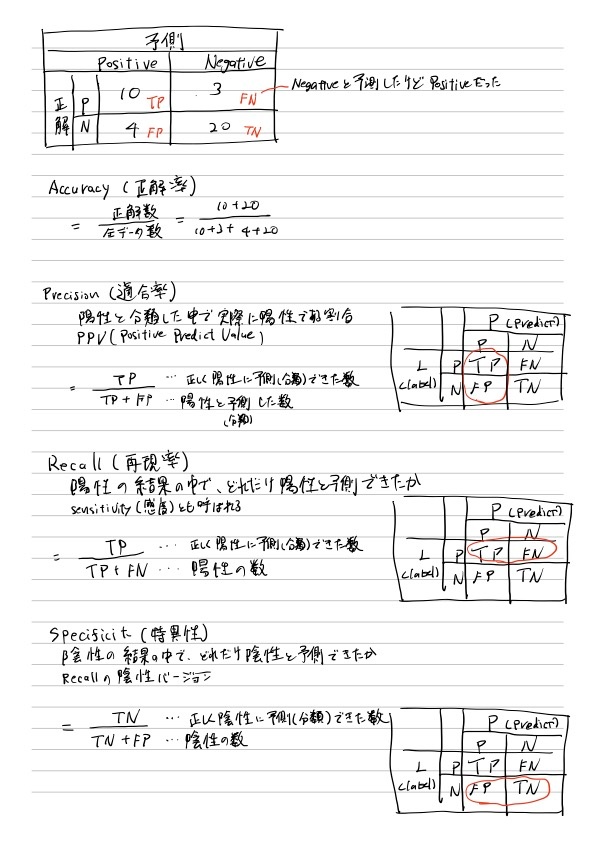 予測
Positive Negative
正解 P 10 TP 3 FN Negativeと予測したけどPositiveだった
N 4 FP 20 TN
Accuracy (正解率)
= 正解数 / 全データ数 = 10+20 / 10+3+4+20
Precision (適合率)
陽性と分類した中で実際に陽性である割合
PPV (Positive Predict Value)
P (Predict)
P N
L (label) P TP FN
N FP TN
= TP / TP + FP
… 正しく陽性に予測(分類)できた数
… 陽性と予測した数
(分類)
Recall (再現率)
陽性の結果の中で、どれだけ陽性と予測できたか
sensitivity (感度)とも呼ばれる
P (Predict)
P N
L (label) P TP FN
N FP TN
= TP / TP + FN
… 正しく陽性に予測(分類)できた数
… 陽性の数
Specificit (特異性)
陰性の結果の中で、どれだけ陰性と予測できたか
Recallの陰性バージョン
= TN / TN + FP
… 正しく陰性に予測(分類)できた数
… 陰性の数
P (Predict)
P N
L (label) P TP FN
N FP TN